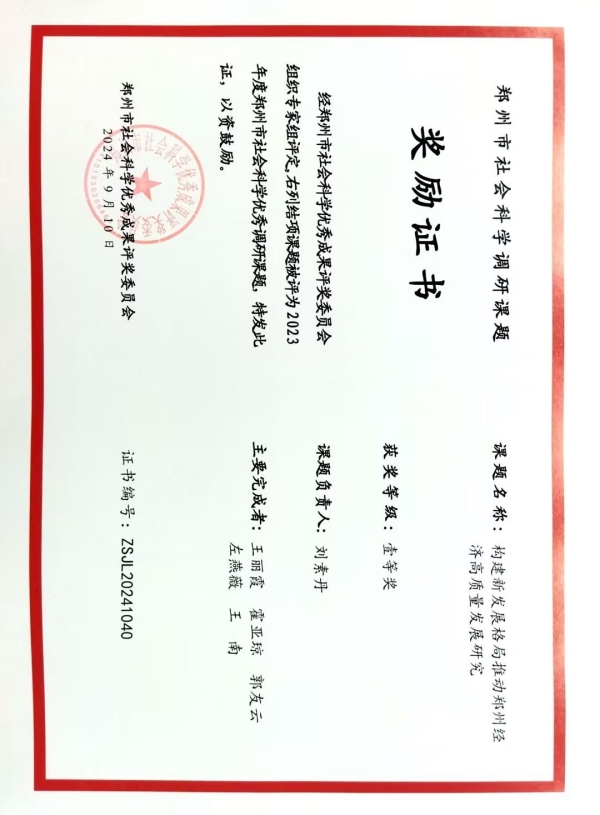 郑州市社会科学调研课题
奖励证书
经郑州市社会科学优秀成果评奖委员会
组织专家组评定,右列结项课题被评为2023
年度郑州市社会科学优秀调研课题,特发此
证，以资鼓励。
郑州市社会科学优秀成果评奖委员会
2024年9月10日
课题名称：构建新发展格局推动郑州经
济高质量发展研究
获奖等级：壹等奖
课题负责人：刘素丹
主要完成者：王丽霞 霍亚琼 郭友云
左燕薇 王南
证书编号：ZSJL20241040